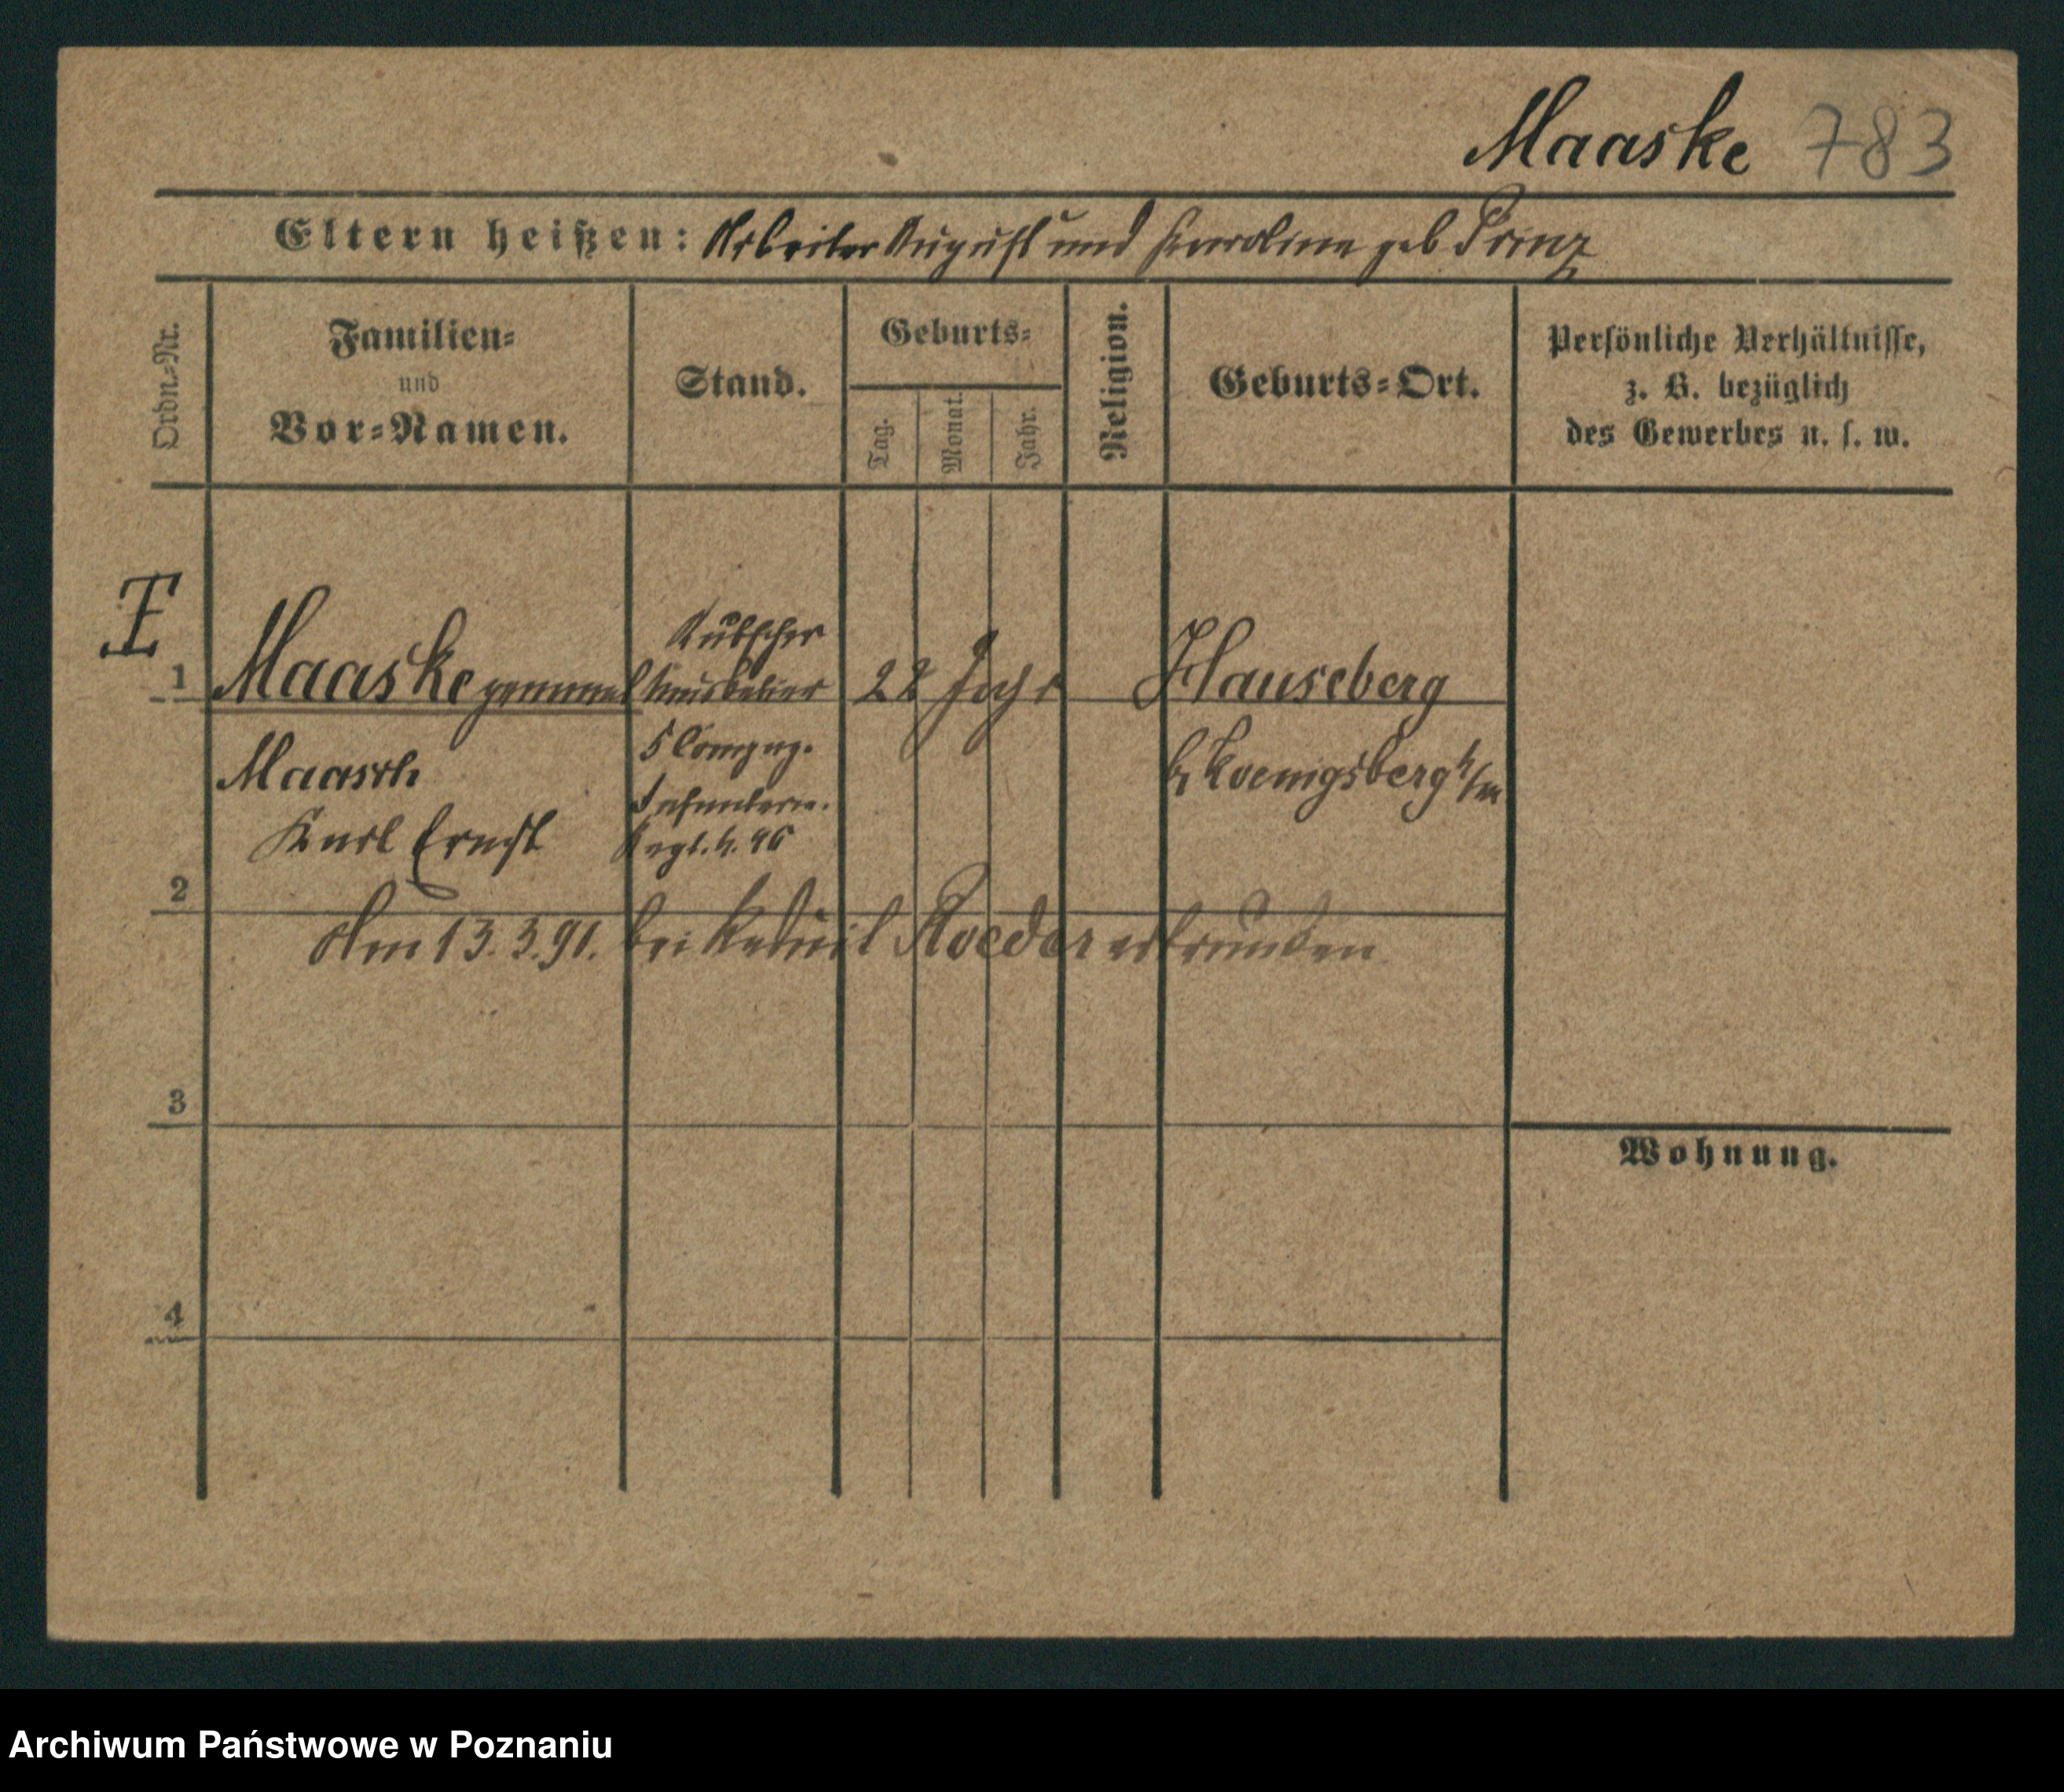 Maaske 783
Eltern heißen: Arbeiter August und Karoline geb Prinz
Ordn.-Nr.
Familien-
und
Vor-Namen.
Stand.
Geburts-
Tag.
Monat.
Jahr.
Religion.
Geburts-Ort.
Persönliche Verhältnisse,
z. B. bezüglich
des Gewerbes u. s. w.
I
1 Maaske genannt
Maasch
Karl Ernst
Kutscher
Musketier
5 Compag.
Infanterie.
Regt. N. 46
22 Jahr
Hauseberg
b Koenigsberg n/m
2
Am 13.3.91. bei Roeder ertrunken
3
4
Wohnung.
Archiwum Państwowe w Poznaniu